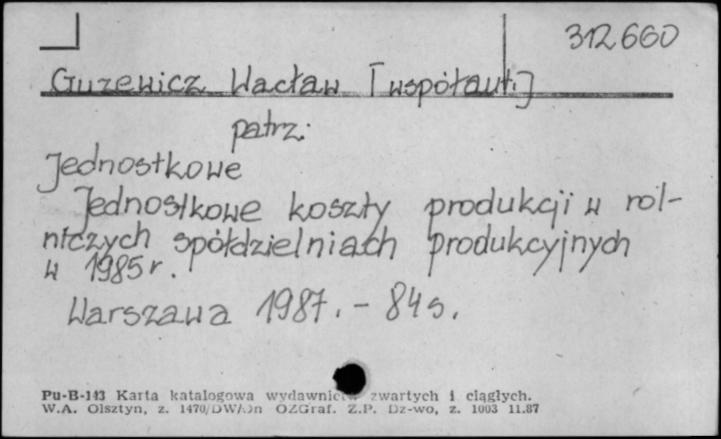 312660
Guzewicz Wacław [współaut.]
patrz:
Jednostkowe
Jednostkowe koszty produkcji w rol-
niczych spółdzielniach produkcyjnych
w 1985 r.
Warszawa 1987. - 84 s.
Pu-B-143 Karta katalogowa wydawnictw zwartych i ciągłych.
W.A. Olsztyn, z. 1470/DWA/n OZGraf. Z.P. Dz-wo, z. 1003 11.87